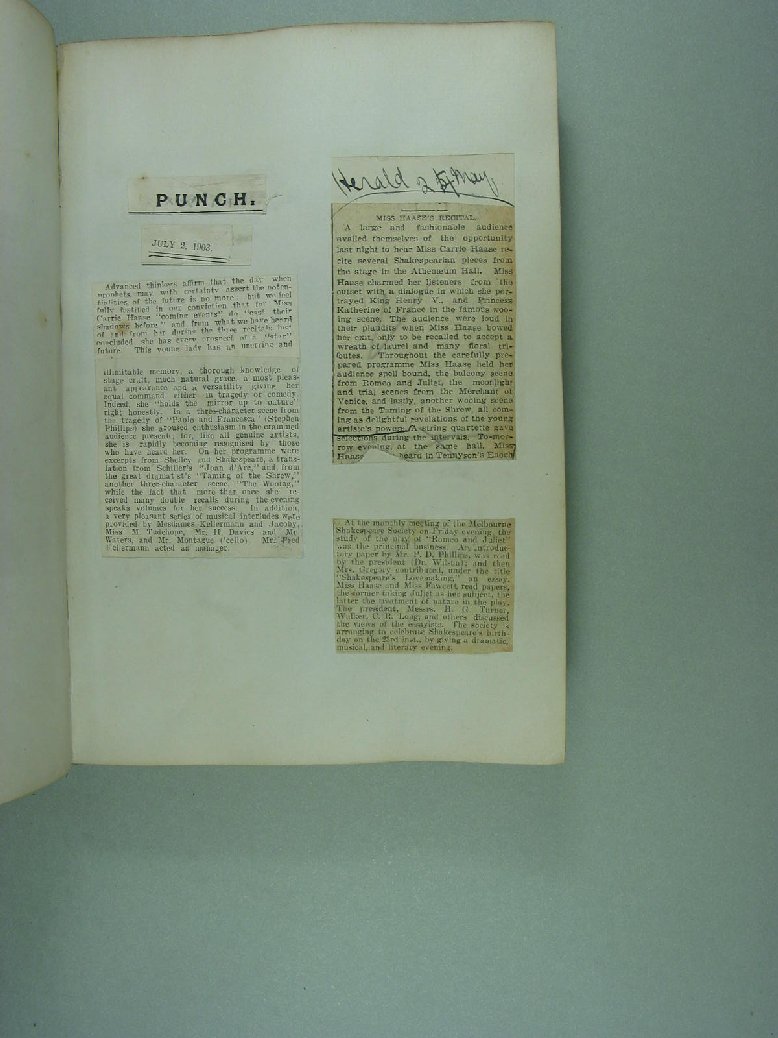 PUNCH.
JULY 2, 1903.
Advanced thinkers affirm that the day when
prophets may with certainty assert the poten-
tialities of the future is no more; but we feel
fully justified in our conviction that for Miss
Carrie Haase "coming events" do "cast their
shadows before," and from what we have heard
of and from her during the three recitals just
concluded she has every prospect of a "star"
future. This young lady has an unerring and
illimitable memory, a thorough knowledge of
stage craft, much natural grace, a most pleas-
ant appearance and a versatility giving her
equal command either in tragedy or comedy.
Indeed, she "holds the mirror up to nature"
right honestly. In a three-character scene from
the tragedy of "Paolo and Francesca" (Stephen
Phillips) she aroused enthusiasm in the crammed
audience present; for, like all genuine artists,
she is rapidly becoming recognised by those
who have heard her. On her programme were
excerpts from Shelley and Shakespeare, a trans-
lation from Schiller's "Joan d'Arc," and from
the great dramatist's "Taming of the Shrew,"
another three-character scene, "The Wooing,"
while the fact that more than once she re-
ceived many double recalls during the evening
speaks volumes for her success. In addition,
a very pleasant series of musical interludes were
provided by Mesdames Kellermann and Jacoby,
Miss M. Tutchings, Mr. H. Davies and Mr.
Waters, and Mr. Montague ('cello). Mr. Fred
Kellermann acted as manager.
Herald 25 May.
MISS HAASE'S RECITAL.
A large and fashionable audience
availed themselves of the opportunity
last night to hear Miss Carrie Haase re-
cite several Shakespearian pieces from
the stage in the Athenæum Hall. Miss
Haase charmed her listeners from the
outset with a dialogue in which she por-
trayed King Henry V., and Princess
Katherine of France in the famous woo-
ing scene. The audience were loud in
their plaudits when Miss Haase bowed
her exit, only to be recalled to accept a
wreath of laurel and many floral tri-
butes. Throughout the carefully pre-
pared programme Miss Haase held her
audience spell bound, the balcony scene
from Romeo and Juliet, the moonlight
and trial scenes from the Merchant of
Venice, and lastly, another wooing scene
from the Taming of the Shrew, all com-
ing as delightful revelations of the young
artiste's power. A string quartette gave
selections during the intervals. To-mor-
row evening, at the same hall, Miss
Haase heard in Tennyson's Enoch
At the monthly meeting of the Melbourne
Shakespeare Society on Friday evening, the
study of the play of "Romeo and Juliet"
was the principal business. An introduc-
tory paper by Mr. P. D. Phillips, was read
by the president (Dr. Wilson); and then
Mrs. Gregory contributed, under the title
"Shakespeare's Love-making," an essay.
Miss Haase and Miss Fawcett read papers,
the former taking Juliet as her subject, the
latter the treatment of nature in the play.
The president, Messrs. H. G. Turner,
Walker, C. R. Long, and others discussed
the views of the essayists. The society is
arranging to celebrate Shakespeare's birth-
day on the 23rd inst., by giving a dramatic,
musical, and literary evening.